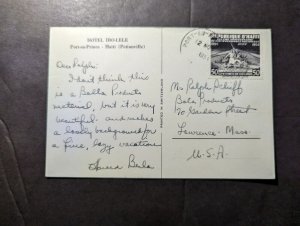 HOTEL IBO-LELE
Port-au-Prince - Haiti (Petionville)
Dear Ralph:
I don't think this
is a Balta Products
material, but it is very
beautiful - and makes
a lovely background for
a fine, lazy vacation
Edward Berla
PORT-AU-
REPUBLIQUE D'HAITI
50
50
Mr. Ralph
Beta Products
Garden Street
Lawrence - Mass.
U-S-A-